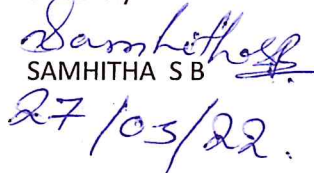 Samhitha S B.
SAMHITHA S B
27/05/22.